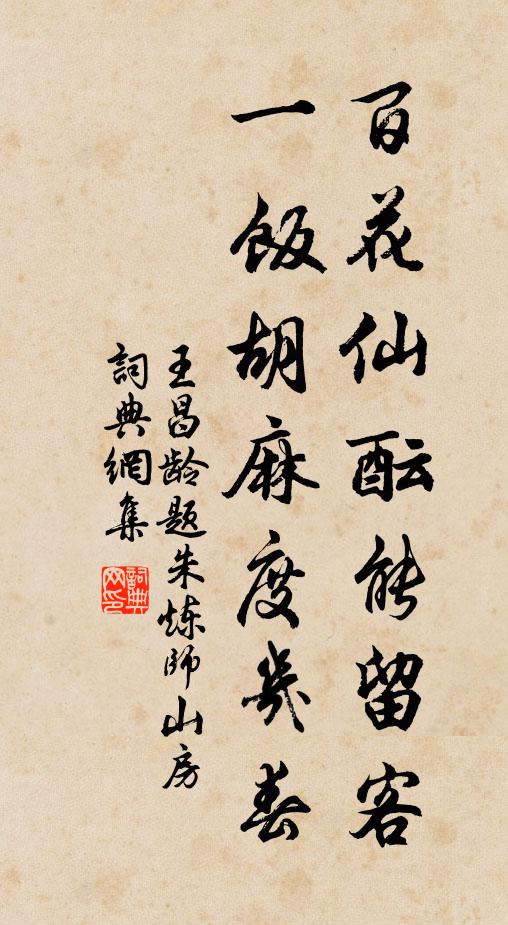 百花仙酝能留客
一饭胡麻度幾春
王昌龄题朱炼師山房
詞典網集
詞典
网印